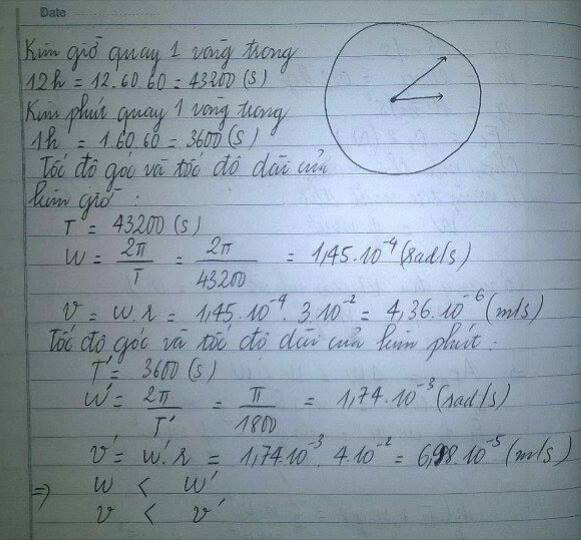 Date
Kim giờ quay 1 vòng trong
12h = 12.60.60 = 43200 (s)
Kim phút quay 1 vòng trong
1h = 1.60.60 = 3600 (s)
Tốc độ góc và tốc độ dài của
kim giờ :
T = 43200 (s)
W = 2π/T = 2π/43200 = 1,45.10⁻⁴ (rad/s)
V = W.r = 1,45.10⁻⁴ . 3.10⁻² = 4,36.10⁻⁶ (m/s)
Tốc độ góc và tốc độ dài của kim phút :
T' = 3600 (s)
W' = 2π/T' = π/1800 = 1,74.10⁻³ (rad/s)
V' = W'.r = 1,74.10⁻³ . 4.10⁻² = 6,98.10⁻⁵ (m/s)
⇒ W < W'
V < V'